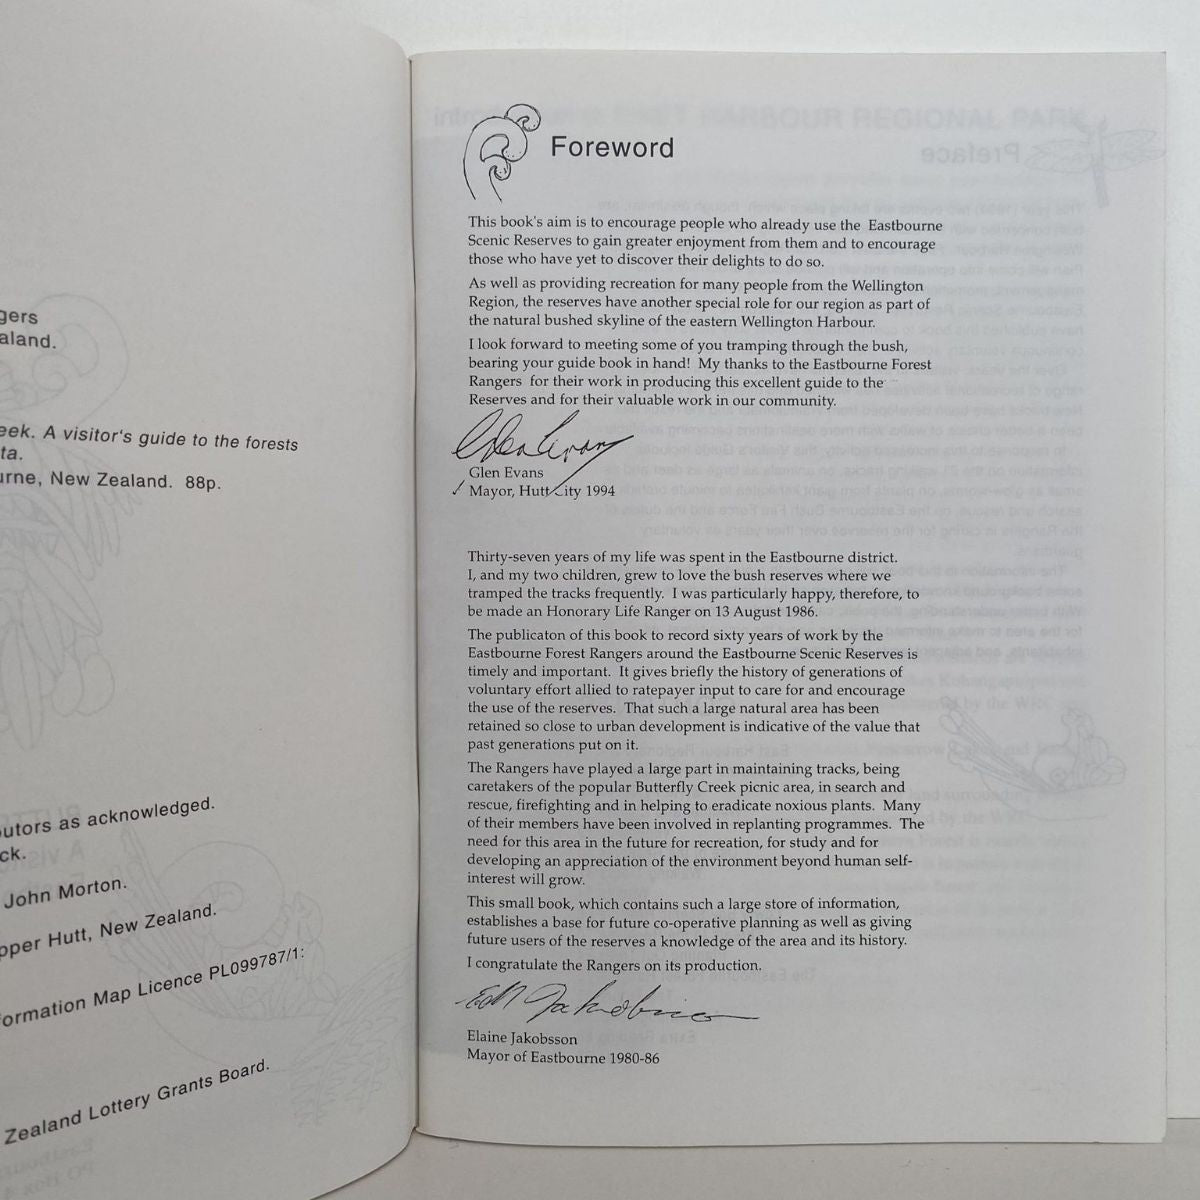 gers
aland.
eek. A visitor's guide to the forests
ta.
urne, New Zealand. 88p.
utors as acknowledged.
ck.
John Morton.
pper Hutt, New Zealand.
formation Map Licence PL099787/1:
Zealand Lottery Grants Board.
Foreword
This book's aim is to encourage people who already use the Eastbourne
Scenic Reserves to gain greater enjoyment from them and to encourage
those who have yet to discover their delights to do so.
As well as providing recreation for many people from the Wellington
Region, the reserves have another special role for our region as part of
the natural bushed skyline of the eastern Wellington Harbour.
I look forward to meeting some of you tramping through the bush,
bearing your guide book in hand! My thanks to the Eastbourne Forest
Rangers for their work in producing this excellent guide to the
Reserves and for their valuable work in our community.
Glen Evans
Glen Evans
Mayor, Hutt City 1994
Thirty-seven years of my life was spent in the Eastbourne district.
I, and my two children, grew to love the bush reserves where we
tramped the tracks frequently. I was particularly happy, therefore, to
be made an Honorary Life Ranger on 13 August 1986.
The publicaton of this book to record sixty years of work by the
Eastbourne Forest Rangers around the Eastbourne Scenic Reserves is
timely and important. It gives briefly the history of generations of
voluntary effort allied to ratepayer input to care for and encourage
the use of the reserves. That such a large natural area has been
retained so close to urban development is indicative of the value that
past generations put on it.
The Rangers have played a large part in maintaining tracks, being
caretakers of the popular Butterfly Creek picnic area, in search and
rescue, firefighting and in helping to eradicate noxious plants. Many
of their members have been involved in replanting programmes. The
need for this area in the future for recreation, for study and for
developing an appreciation of the environment beyond human self-
interest will grow.
This small book, which contains such a large store of information,
establishes a base for future co-operative planning as well as giving
future users of the reserves a knowledge of the area and its history.
I congratulate the Rangers on its production.
Jakobsson
Elaine Jakobsson
Mayor of Eastbourne 1980-86